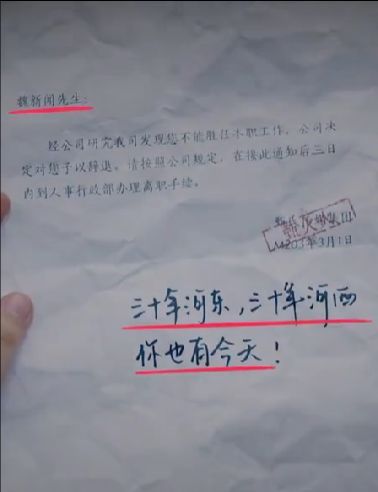 魏新闻先生:
经公司研究我司发现您不能胜任本职工作,公司决
定对您予以辞退。请按照公司规定,在接此通知后三日
内到人事行政部办理离职手续。
年3月1日
三十年河东,三十年河西
你也有今天!